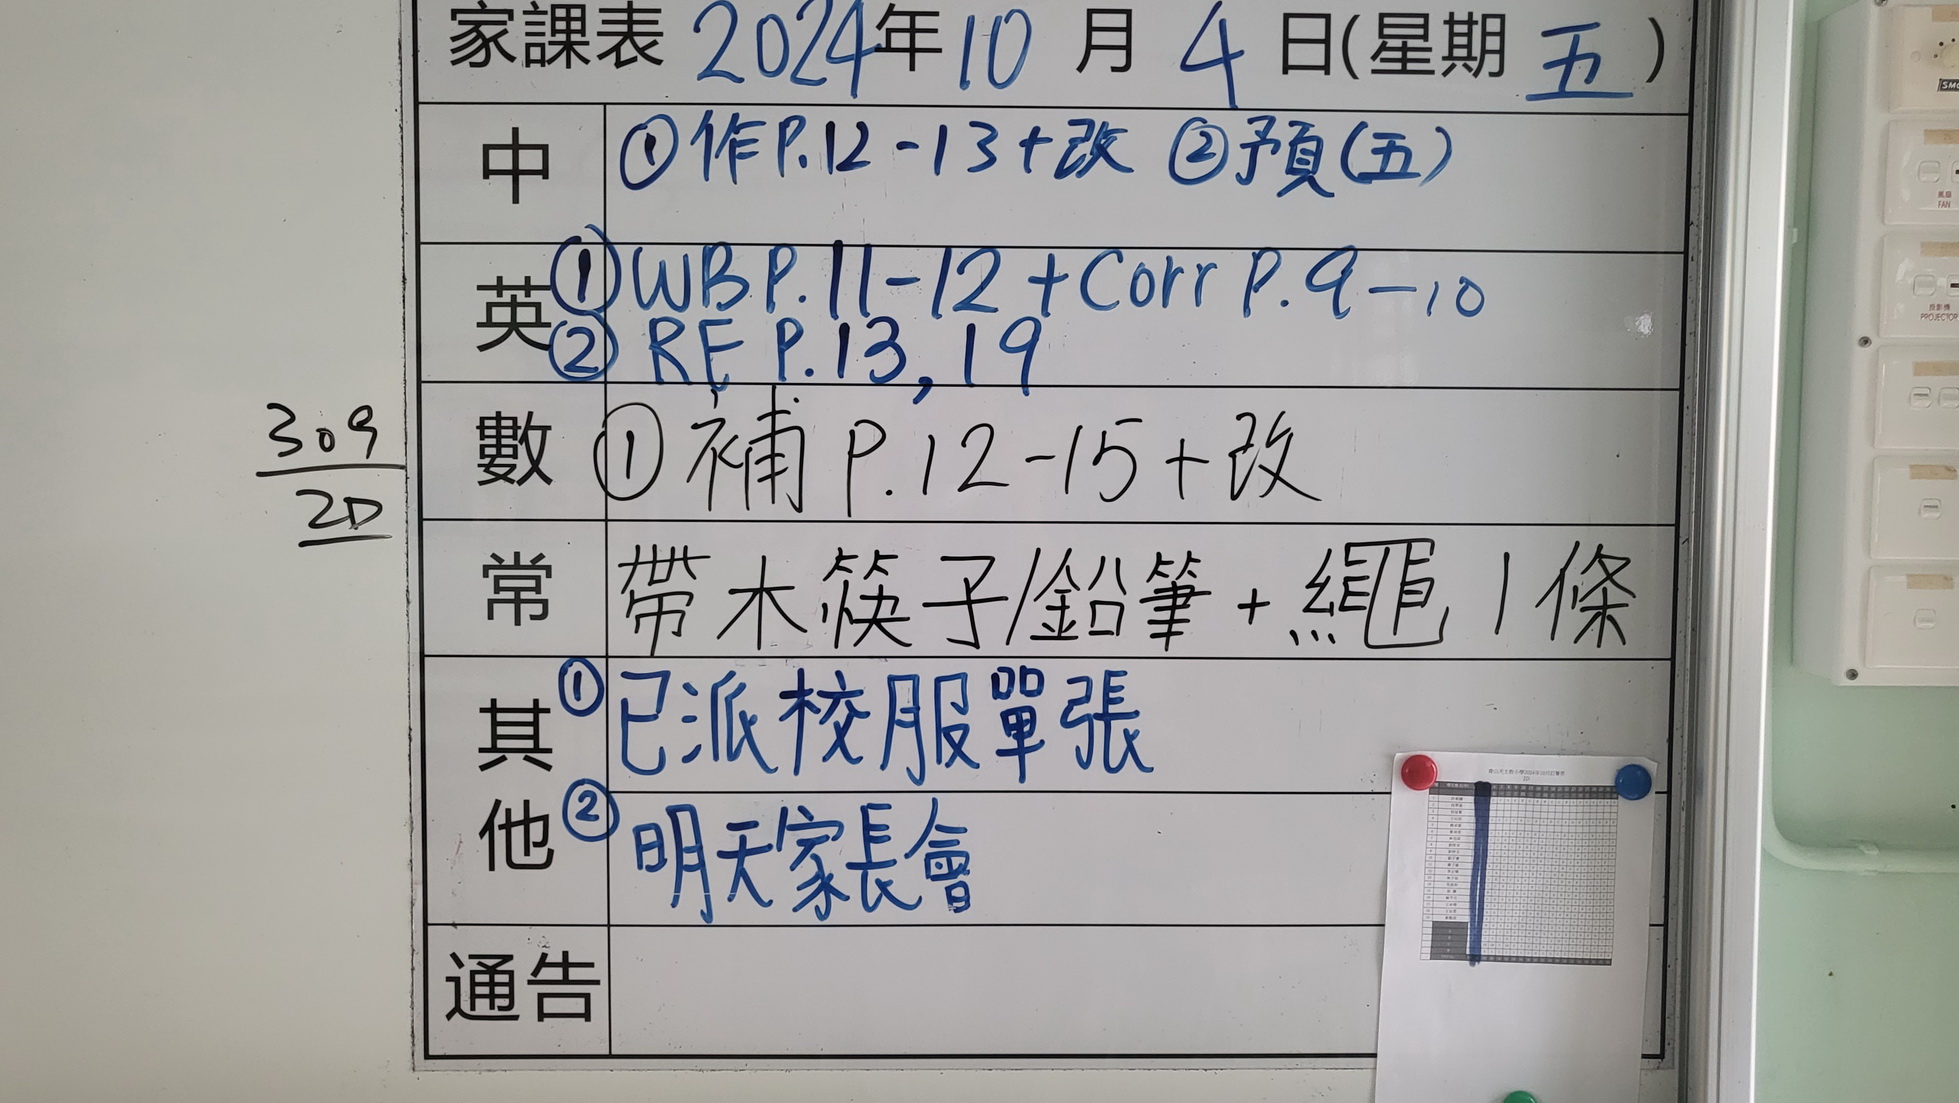 家課表 2024年10月4日(星期五)
中 ①作P.12-13+改 ②預(五)
英 ①WB P.11-12+Corr P.9-10
② RE P.13,19
309
2D
數 ①補 P.12-15+改
常 帶木筷子/鉛筆+繩1條
其他 ①已派校服單張
②明天家長會
通告
風扇
FAN
投影機
PROJECTOR